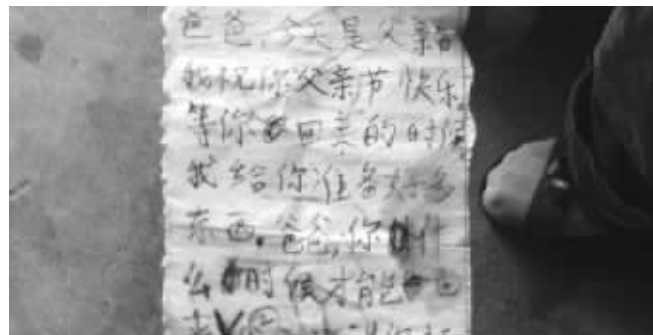 爸爸,今天是父亲节
我祝你父亲节快乐
等你回来的时候
我给你准备好多
东西。爸爸,你什
么时候才能